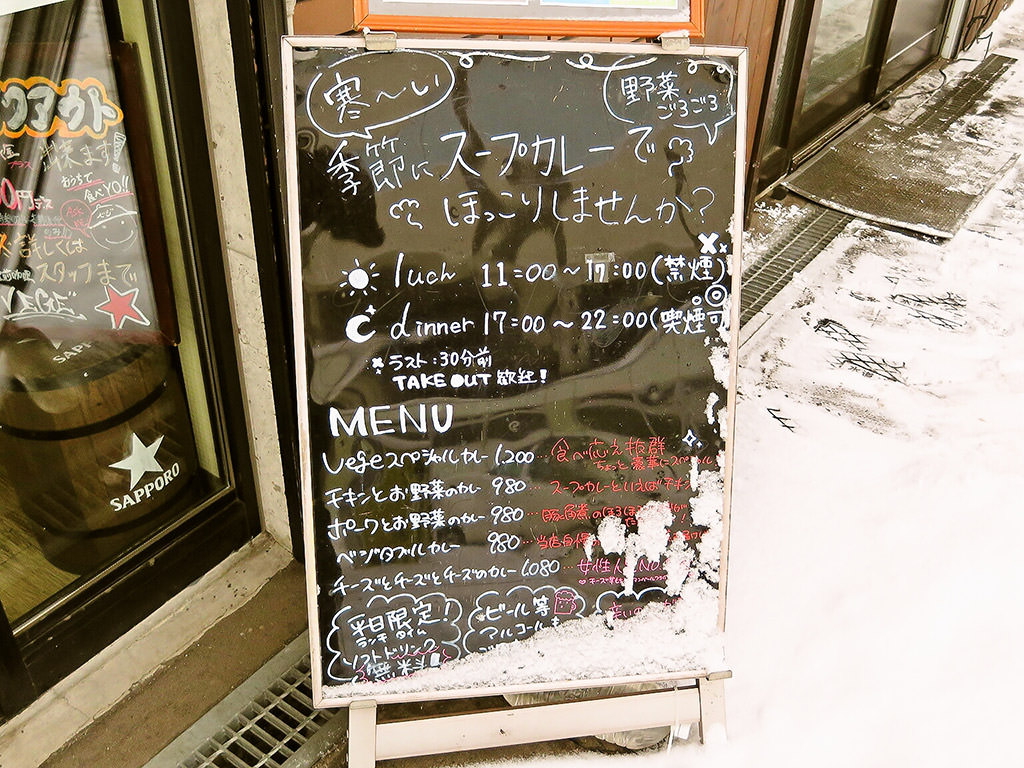 寒〜い
野菜
ごろごろ
季節にスープカレーで
ほっこりしませんか?
luch 11:00〜17:00(禁煙)
dinner 17:00〜22:00(喫煙可
*ラスト:30分前
TAKE OUT 歓迎!
MENU
Vegeスペシャルカレー 1,200…食べ応え抜群
ちょっと豪華にスペシャル
チキンとお野菜のカレー 980…スープカレーといえばチキン
ポークとお野菜のカレー 980…豚の角煮のほろほろ
ベジタブルカレー 980…当店自慢
チーズとチーズとチーズのカレー 1,080…女性人気NO.
平日限定!
ランチタイム
ソフトドリンク
無料!
ビール等
アルコールも
辛いの
クアウト
出来ます!
おうちで
食べYO!!
0円
詳しくは
スタッフまで
VEGE
SAPPORO
SAPPORO